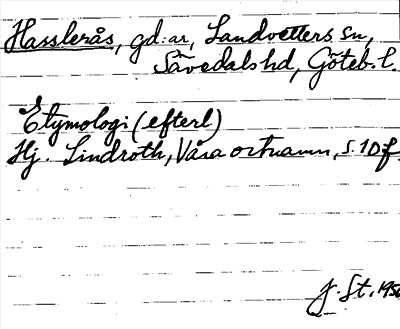 Hasslerås, gd:ar, Landvetters sn,
Sävedals hd, Göteb. l.
Etymologi (efterl)
Hj. Lindroth, Våra ortnamn, s. 10 f.
J. St. 195